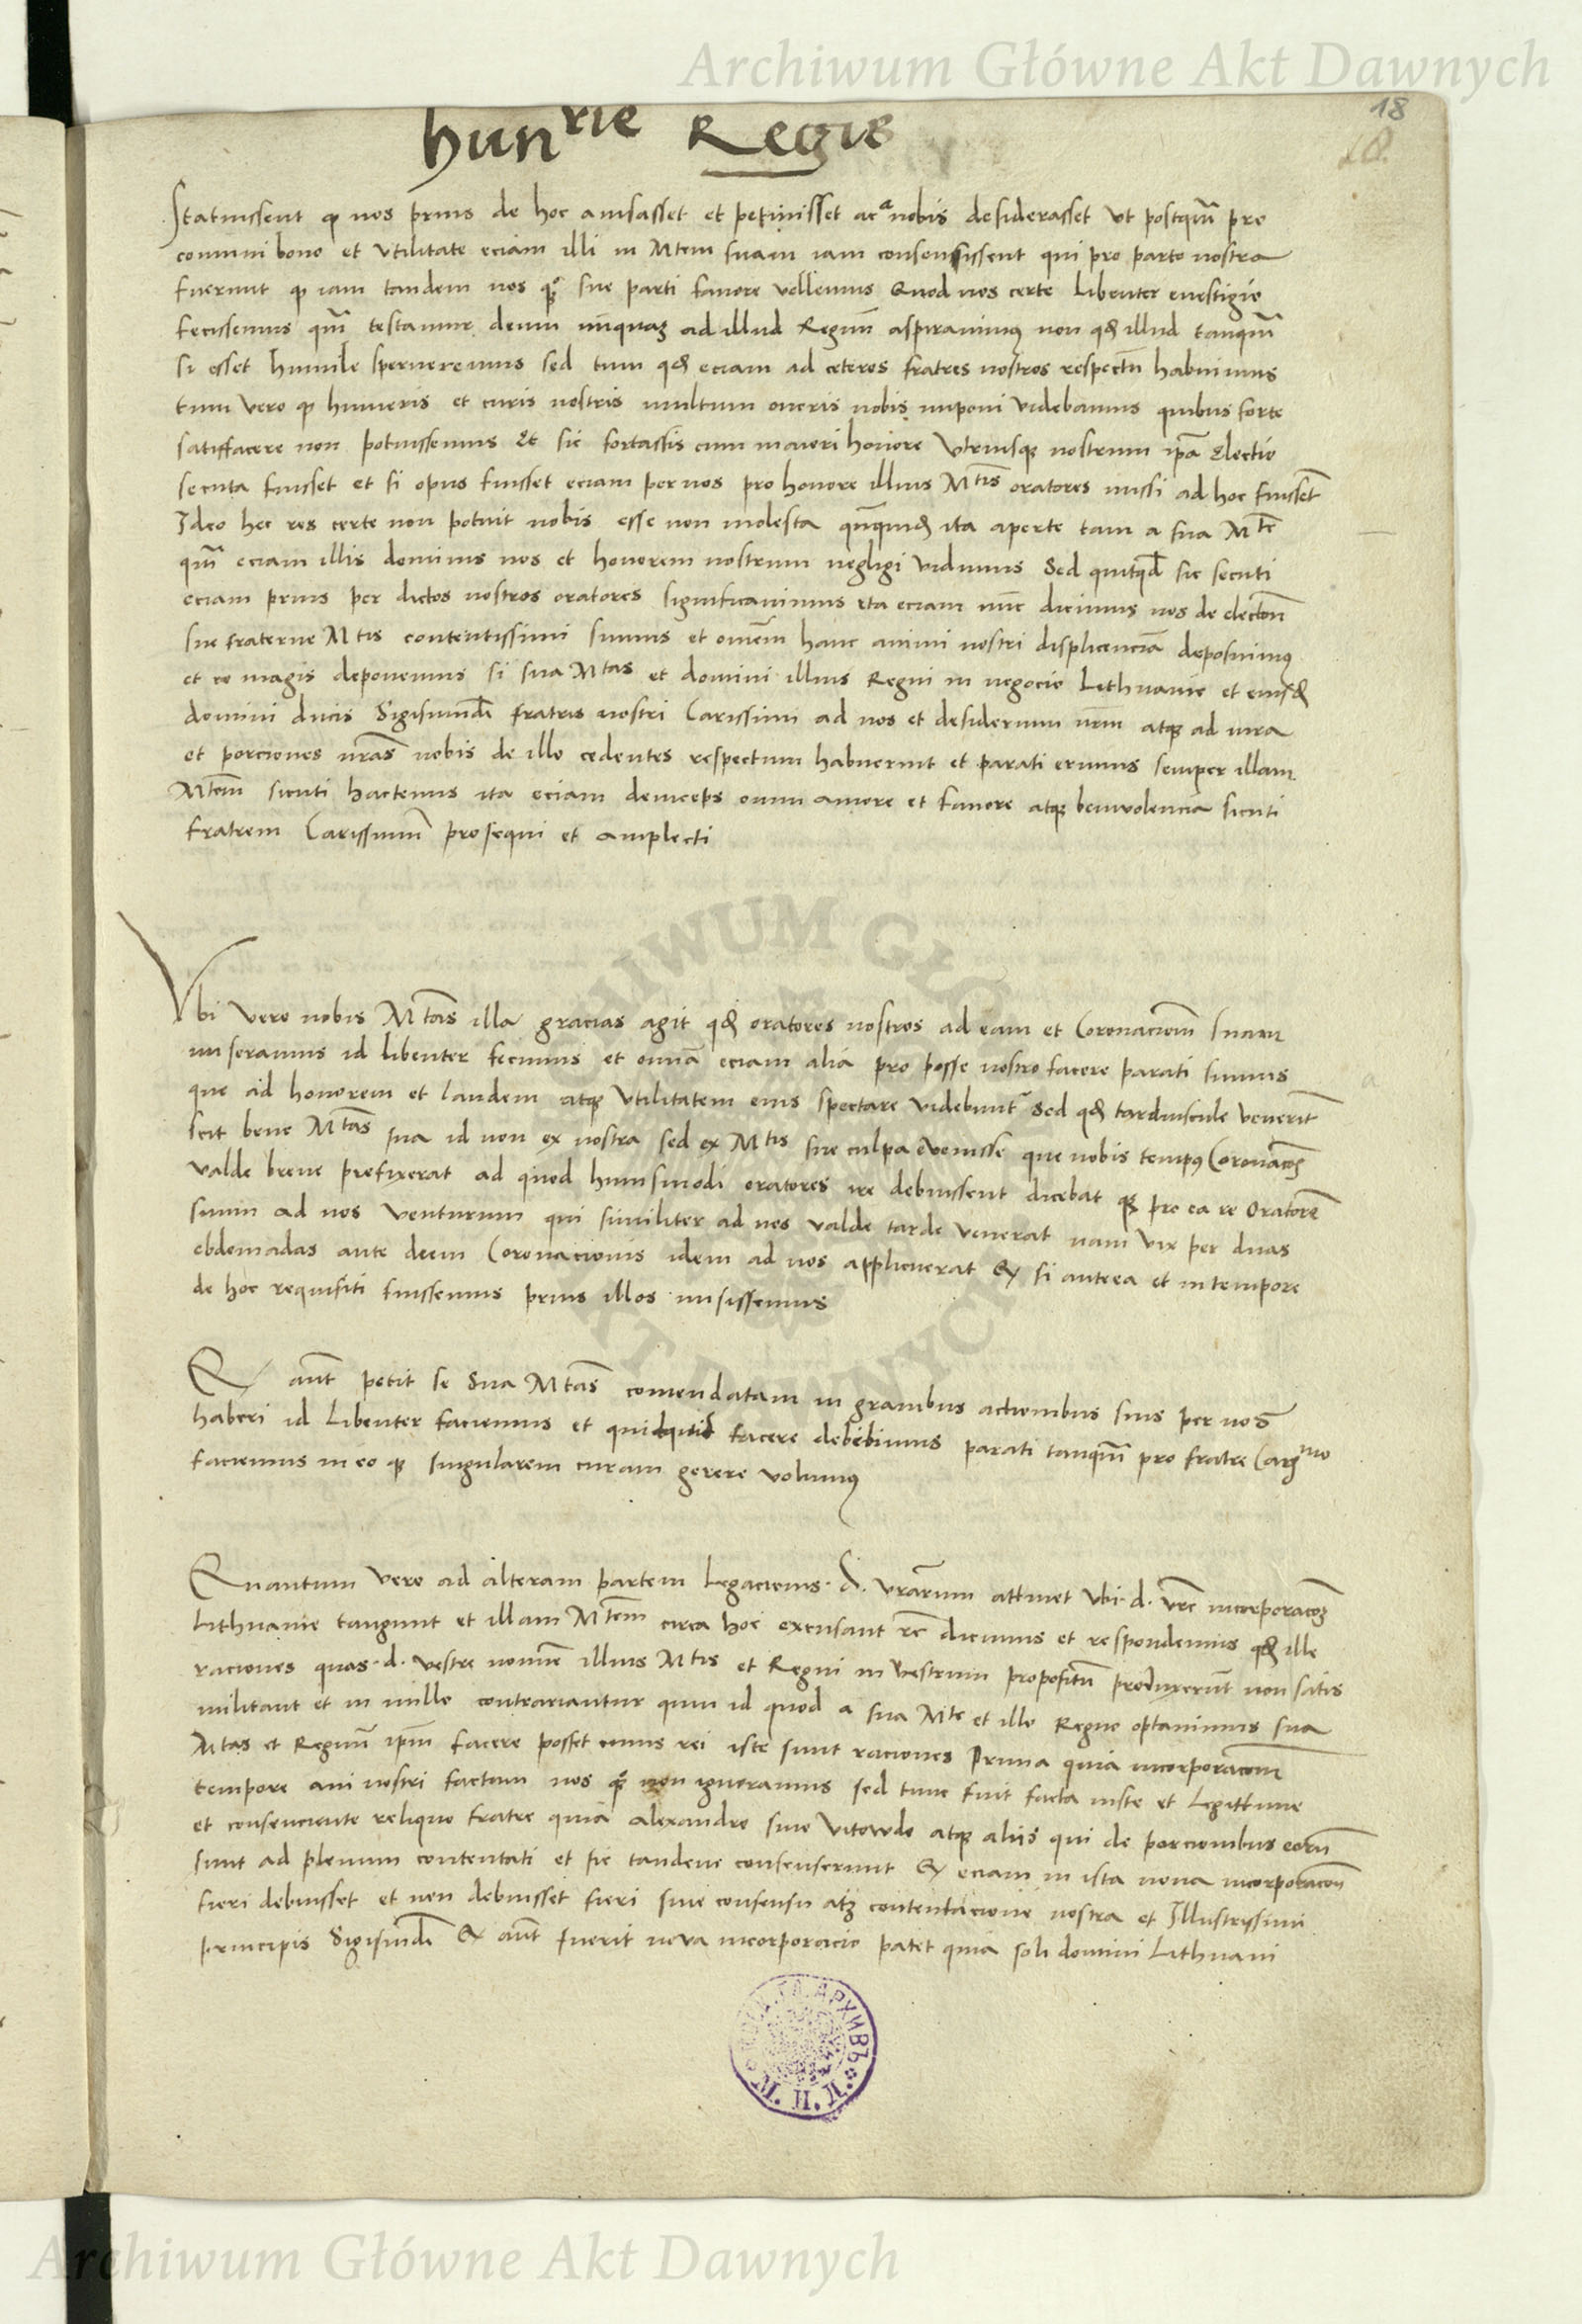 Archiwum Główne Akt Dawnych
18
18.
hunrie Regie
Statuissent q nos prius de hoc auisasset et petiuisset ac a nobis desiderasset Vt postquam pro
comuni bono et Vtilitate eciam illi in Mtem suam iam consensissent qui pro parte nostra
fuerunt q iam tandem nos qz sue parti fauore vellemus Quod nos certe Libenter euestigio
fecissemus qm testamur deum nuquaz ad illud Regnu aspirauimus non qd illud tanqm
si esset humile sperneremus sed tum qd eciam ad ceteros fratres nostros respectu habuimus
tum vero q humeris et curis nostris multum oneris nobis imponi videbamus quibus forte
satisfacere non potuissemus Et sic fortassis cum maiori honore Vtriusque nostrum ipa Electio
secuta fuisset et si opus fuisset eciam per nos pro honore illius Mtis oratores missi ad hoc fuisset
Ideo hec res certe non potuit nobis esse non molesta ita aperte tam a sua Mte
qm eciam illis dominis nos et honorem nostrum negligi vidimus Sed quitqd sic secuti
eciam prius per dictos nostros oratores significauimus ita eciam nuc dicimus nos de electon
sue fraterne Mtis contentissimi sumus et omem hanc animi nostri displicencia deposuimus
et eo magis deponemus si sua Mtas et domini illius Regni in negocio Lithuanie et eiusd
domini ducis Sigismundi fratris nostri Carissimi ad nos et desiderium nrm atq ad iura
et porciones nras nobis de illo cedentes respectum habuerint et parati erimus semper illam
Mtem sicuti hactenus ita eciam deinceps omni amore et fauore atq beniuolencia sicuti
fratrem Carissimu prosequi et amplecti
Vbi vero nobis Mtas illa gracias agit qd oratores nostros ad eam et Coronacioem suam
miseramus id libenter fecimus et omia eciam alia pro posse nostro facere parati sumus
que ad honorem et laudem atq Vtilitatem eius spectare videbunt Sed qd tardiuscule venerit
scit bene Mtas sua id non ex nostra sed ex Mtis sue culpa euenisse que nobis tempus Coronacois
valde breue prefixerat ad quod huiusmodi oratores ire debuissent dicebat qz pro ea re Oratore
suum ad nos venturum qui similiter ad nos valde tarde venerat nam vix per duas
ebdomadas ante diem Coronacionis idem ad nos applicuerat Q si antea et in tempore
de hoc requisiti fuissemus prius illos misissemus
Q aut petit se Sua Mtas comendatam in grauibus actionibus suis per nos
haberi id Libenter faciemus et quidquid facere debebimus parati tanqm pro fratre Carmo
faciemus in eo q singularem curam gerere volumus
Quantum vero ad alteram partem Legacionis .d. vrarum attinet Vbi .d. vre incorporacoz
Lithuanie tangunt et illam Mtem circa hoc excusant rc dicimus et respondemus qd ille
raciones quas .d. vestre nomine illius Mtis et Regni in vestrum propositu produxerut non satis
militant et in nullo contrariantur quin id quod a sua Mte et illo Regno optauimus sua
Mtas et Regnu ipm facere posset cuius rei iste sunt raciones Prima quia incorporacom
tempore aui nostri factam nos qz non ignoramus sed tunc fuit facta iuste et Legittime
et consenciente reliquo fratre quia alexandro siue Vitowdo atq aliis qui de porcionibus eoru
sunt ad plenum contentati et sic tandem consenserunt Q eciam in ista noua incorporacon
fieri debuisset et non debuisset fieri sine consensu atz contentacione nostra et Illustrissimi
principis Sigismdi Q aut fuerit noua incorporacio patet quia soli domini Lithuani
Archiwum Główne Akt Dawnych